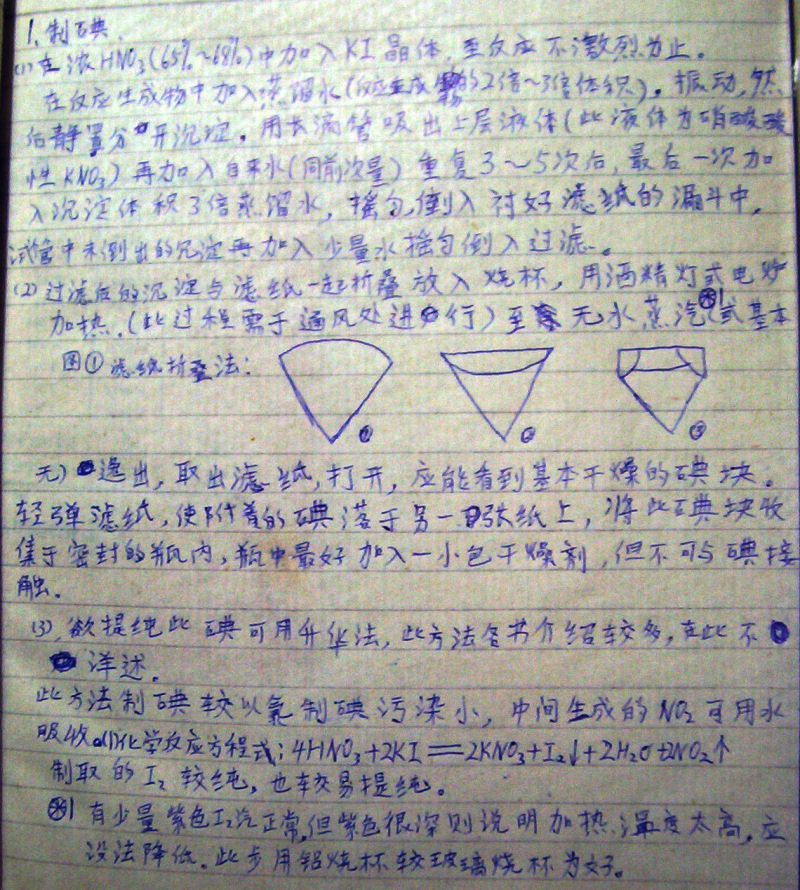 1、制碘.
(1) 在浓HNO₃(65%~68%)中加入KI晶体,至反应不激烈为止。
在反应生成物中加入蒸馏水(反应生成物的2倍~3倍体积)。振动,然
后静置分开沉淀。用长滴管吸出上层液体(此液体为硝酸酸
性KNO₃)再加入自来水(同前次量)重复3~5次后,最后一次加
入沉淀体积3倍蒸馏水,摇匀,倒入衬好滤纸的漏斗中,
试管中未倒出的沉淀再加入少量水摇匀倒入过滤。
(2) 过滤后的沉淀与滤纸一起折叠放入烧杯,用酒精灯或电炉
加热.(此过程需于通风处进行)至无水蒸汽※1(或基本
图①滤纸折叠法:
无)逸出,取出滤纸,打开,应能看到基本干燥的碘块。
轻弹滤纸,使附着的碘落于另一张纸上,将此碘块收
集于密封的瓶内,瓶中最好加入一小包干燥剂,但不可与碘接
触.
(3).欲提纯此碘可用升华法,此方法各书介绍较多,在此不
洋述.
此方法制碘较以氯制碘污染小,中间生成的NO₂可用水
吸收。(1)化学反应方程式:4HNO₃+2KI=2KNO₃+I₂↓+2H₂O+2NO₂↑
制取的I₂较纯,也较易提纯。
※1 有少量紫色I₂汽正常,但紫色很深则说明加热温度太高,应
设法降低.此步用铝烧杯较玻璃烧杯为好。